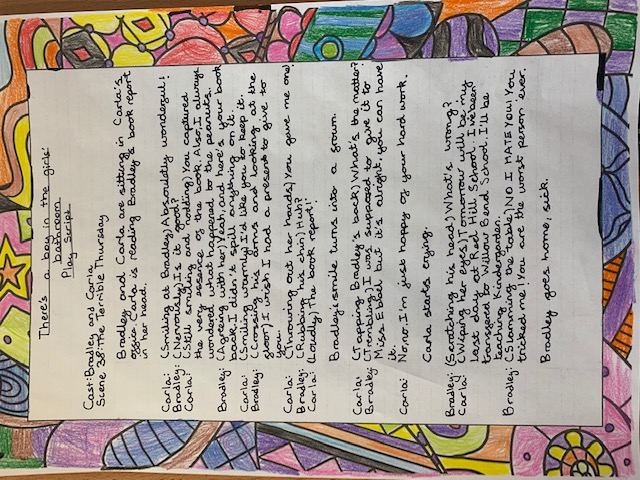 There's a boy in the girls'
bathroom
Play Script
Cast: Bradley and Carla
Scene 38: The Terrible Thursday
Bradley and Carla are sitting in Carla's
office. Carla is reading Bradley's book report
in her head.
Carla: (Smiling at Bradley) Absolutely wonderful!
Bradley: (Nervously) Is it good?
Carla: (Still smiling and nodding) You captured
the very essence of the book. Also, I always
wondered what happened to the peanuts.
Bradley: (Agreeing with her) Yeah and here's your book
back. I didn't spill anything on it.
Carla: (Smiling warmly) I'd like you to keep it.
Bradley: (Crossing his arms and looking at the
floor) I wish I had a present to give to
you.
Carla: (Throwing out her hands) You gave me one!
Bradley: (Rubbing his chin) Huh?
Carla: (Loudly) The book report!
Bradley's smile turns into a frown.
Carla: (Tapping Bradley's back) What's the matter?
Bradley: (Trembling) I was supposed to give it to
Miss Ebbel but it's alright, you can have
it.
Carla: No, no. I'm just happy of your hard work.
Carla starts crying.
Bradley: (Scratching his head) What's wrong?
Carla: (Wiping her eyes) Tomorrow will be my
last day at Red Hill School. I've been
transfered to Willow Bend School. I'll be
teaching Kindergarten.
Bradley: (Slamming the table) NO I HATE YOU! You
tricked me! You are the worst person ever.
Bradley goes home, sick.